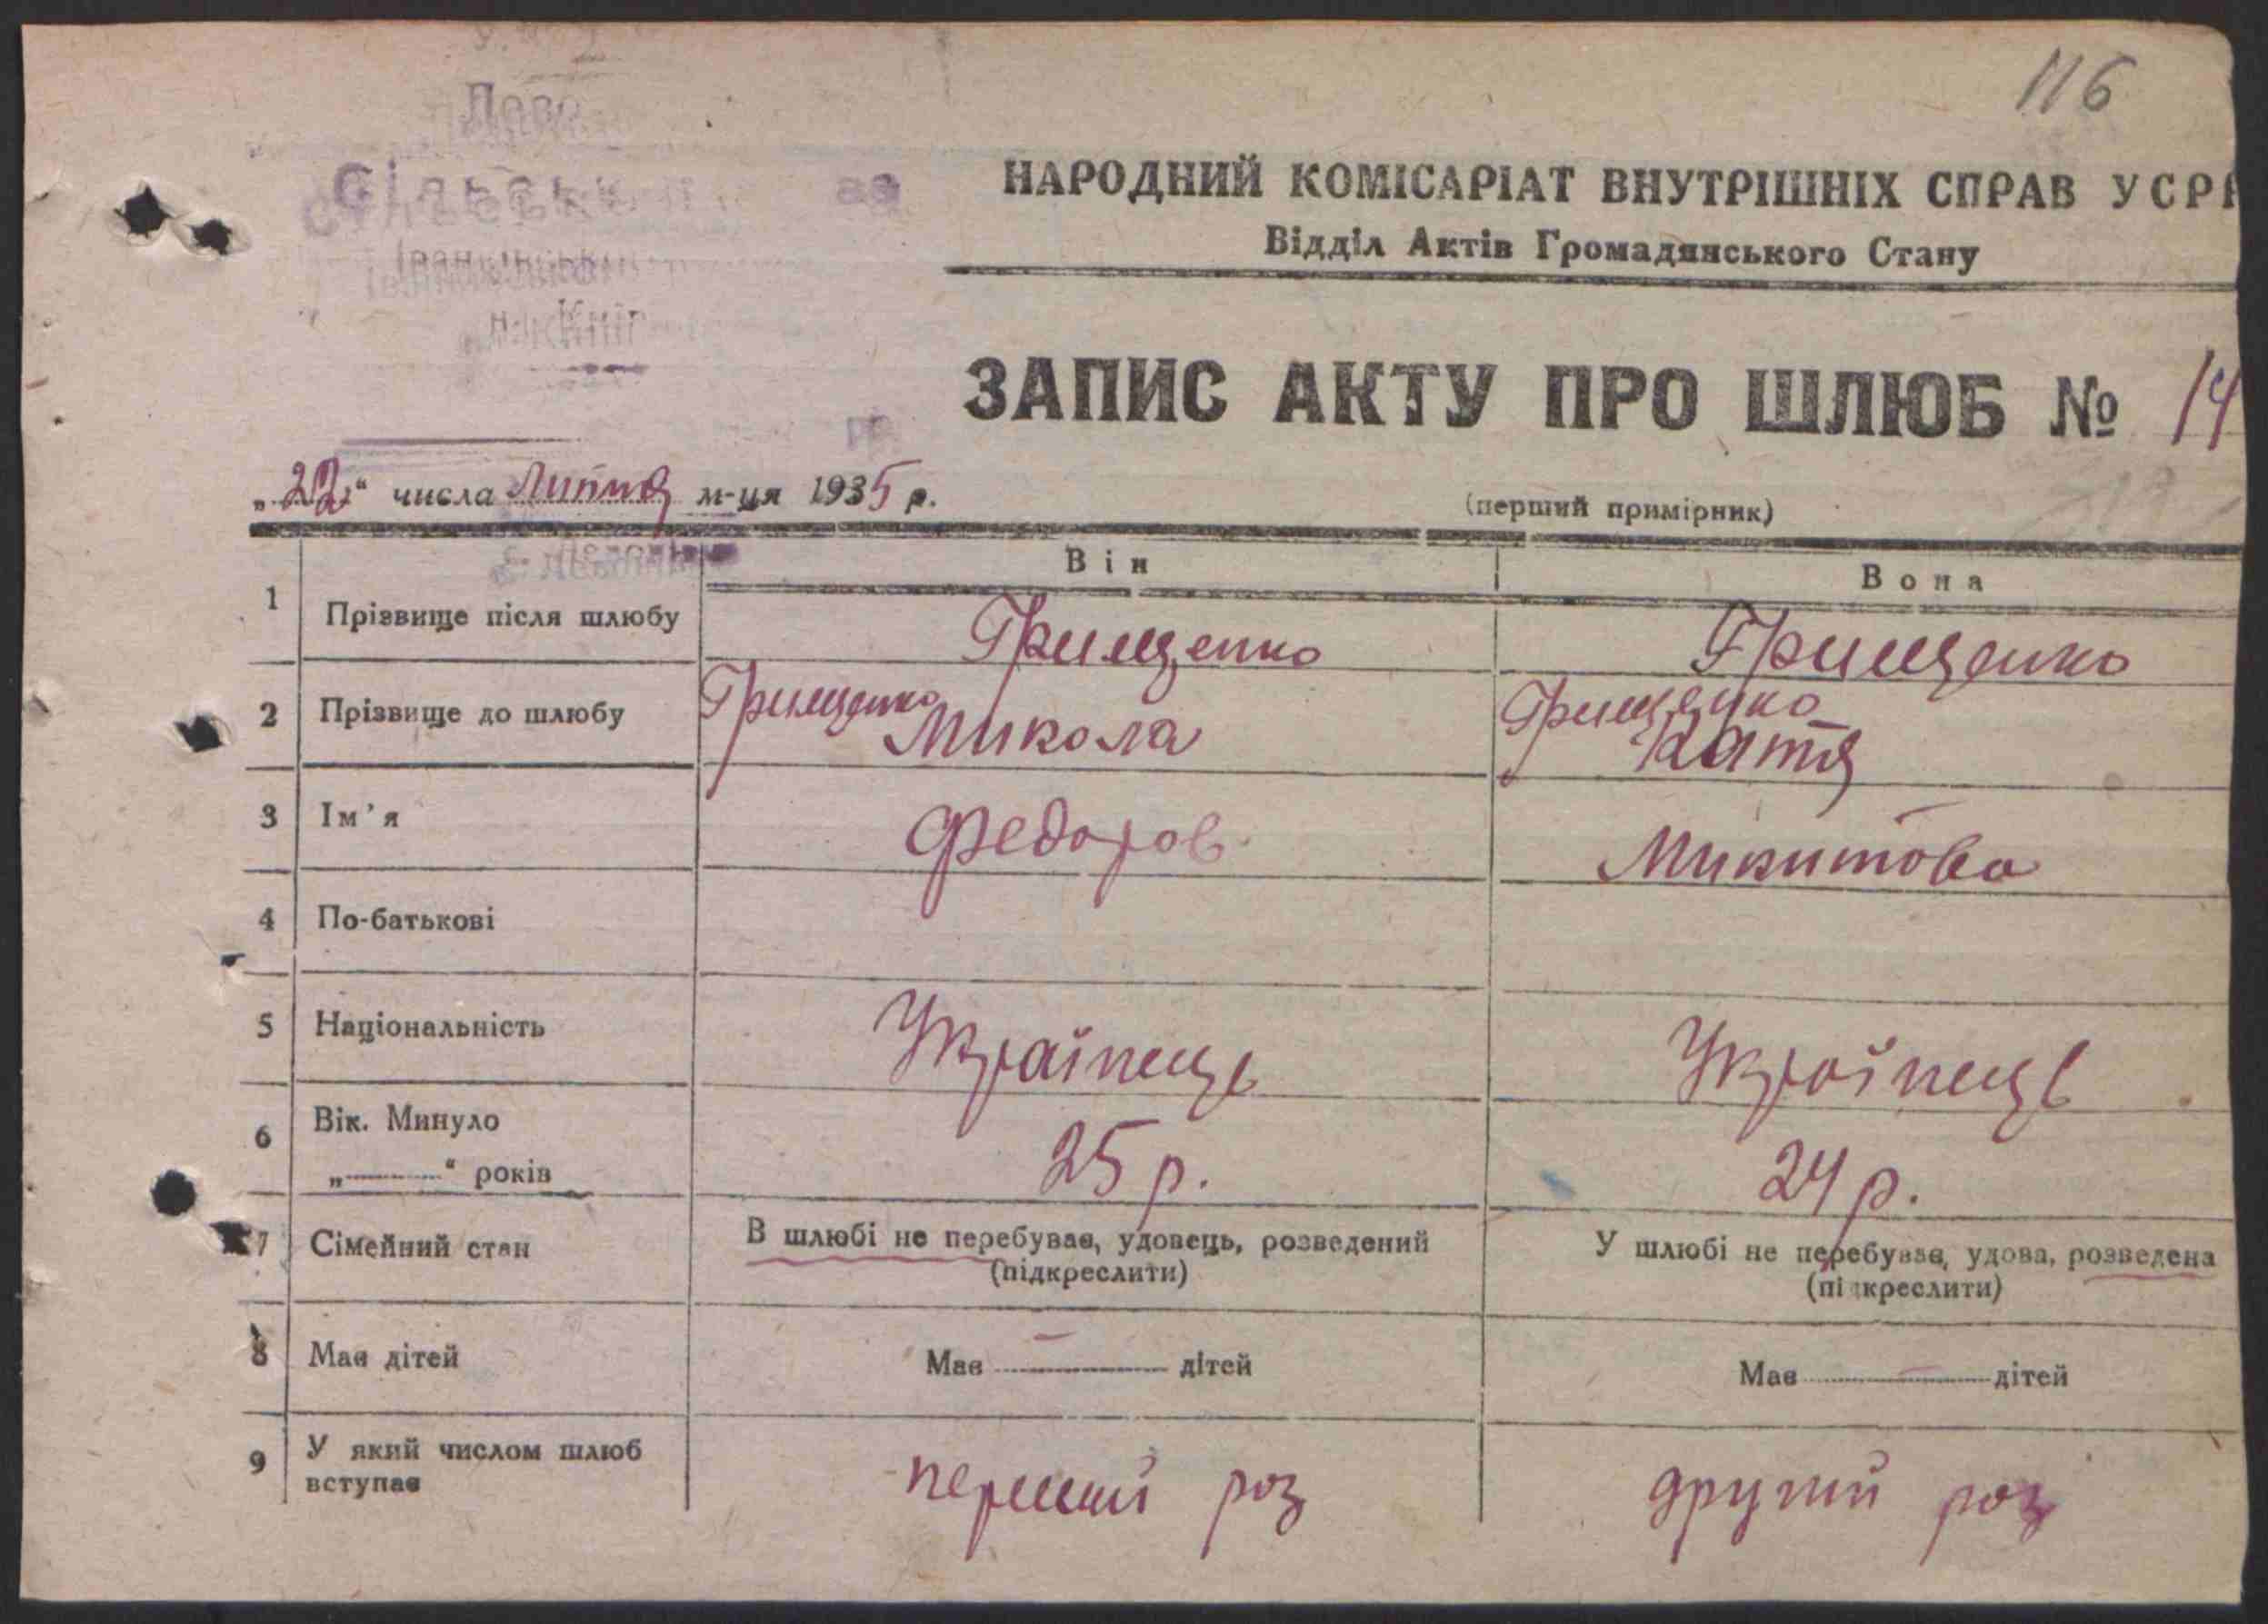 116
НАРОДНИЙ КОМІСАРІАТ ВНУТРІШНІХ СПРАВ УСРР
Відділ Актів Громадянського Стану
ЗАПИС АКТУ ПРО ШЛЮБ № 14
„22“ числа Липня м-ця 1935 р.
(перший примірник)
Він Вона
1 Прізвище після шлюбу Грищенко Грищенко
2 Прізвище до шлюбу Грищенко Микола Грищенко Катя
3 Ім'я Федоров Микитова
4 По-батькові
5 Національність Українець Українець
6 Вік. Минуло
„ “ років 25 р. 24 р.
7 Сімейний стан В шлюбі не перебуває, удовець, розведений У шлюбі не перебуває, удова, розведена
(підкреслити) (підкреслити)
8 Має дітей Має — дітей Має — дітей
9 У який числом шлюб
вступає перший раз другий раз